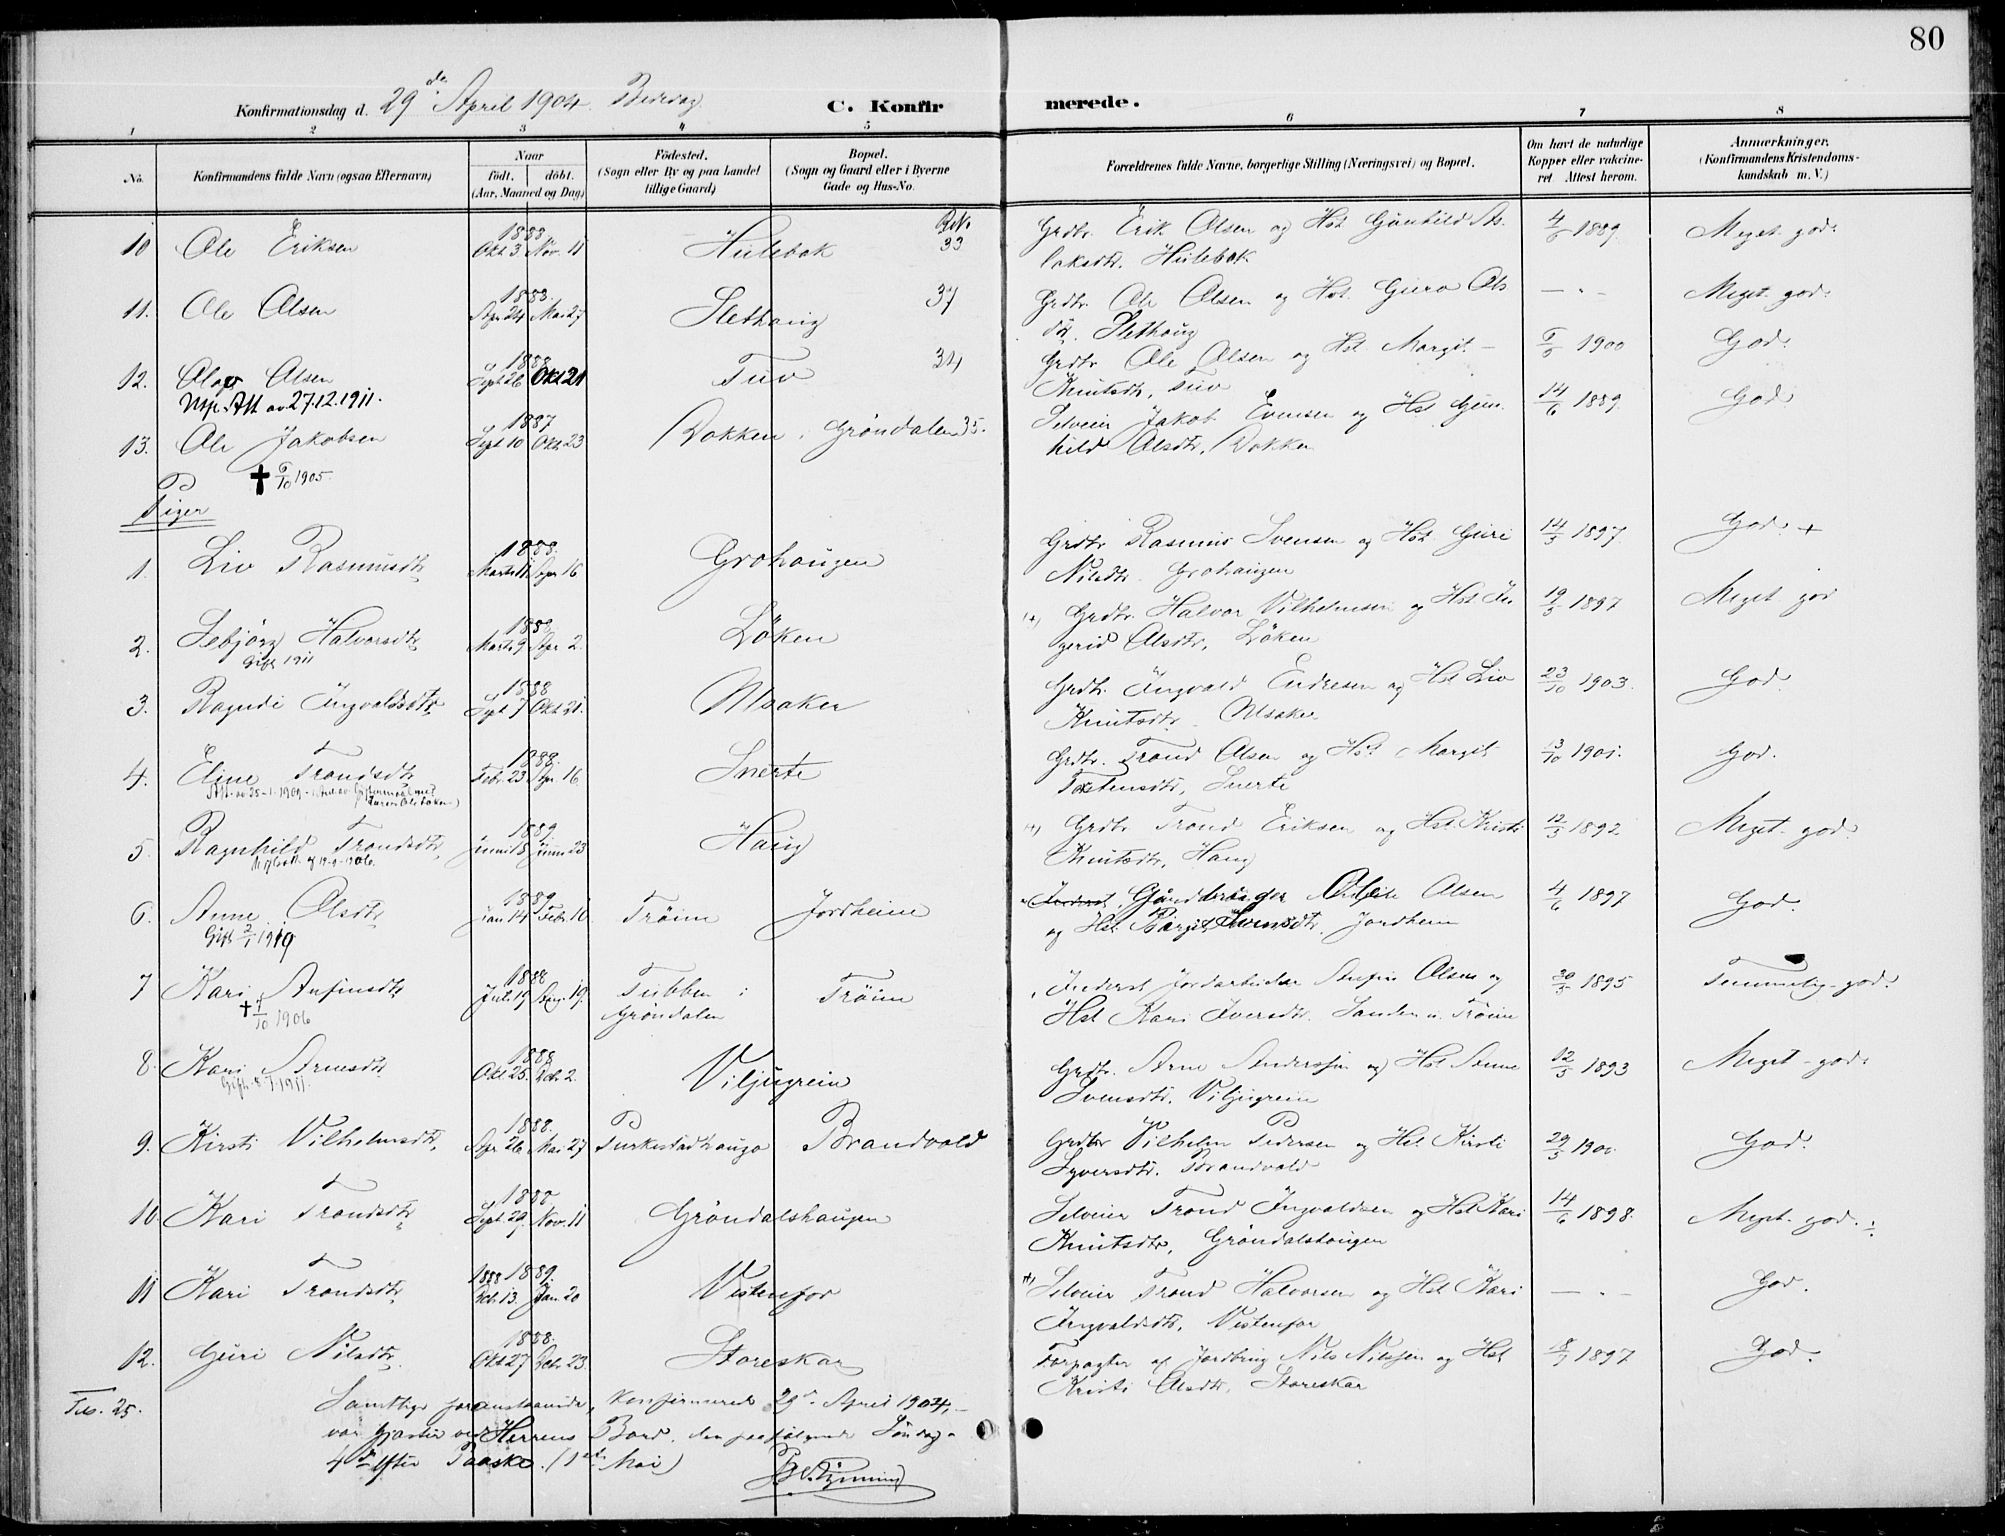 80
Konfirmationsdag d. 29de April 1904. Bededag
C. Konfirmerede.
1 2 3 4 5 6 7 8
No. Konfirmandens fulde Navn (ogsaa Efternavn) Naar födt. döbt. (Aar, Maaned og Dag) Födested. (Sogn eller By og paa Landet tillige Gaard) Bopæl. (Sogn og Gaard eller i Byerne Gade og Hus-No. Forældrenes fulde Navne, borgerlige Stilling (Næringsvei) og Bopæl. Om havt de naturlige Kopper eller vakcineret Attest herom. Anmærkninger. (Konfirmandens Kristendomskundskab m. V.)
10 Ole Eriksen 1888 Okt 3 Nov. 11 Hulebak 33 Grdbr. Erik Olsen og Hst Gunhild As-
laksdtr. Hulebak 4/6 1889. Meget god.
11. Ole Olsen 1888. Apr 24 Mai 27 Slethaug 37 Grdbr. Ole Olsen og Hst. Guro Ols
dtr. Slethaug — " — Meget god.
12. Olav Olsen 1888 Sept 26 Okt 21 Tuv 34 Grdbr Ole Olsen og Hst Margit
Knutsdtr, Tuv 1900 God.
Utsk. Att av 27.12.1911.
13. Ole Jakobsen 1887 Sept 10 Okt. 23 Dokken, Gröndalen 35. Selveier Jakob Evensen og Hst Gun-
hild Olsdtr, Dokken 14/6 1889. God
✝ 6/10 1905.
Piger
1. Liv Rasmusdtr 1888. Marts 11 Apr 16 Grohaugen Grdbr Rasmus Svensen og Hst Guri
Nilsdtr. Grohaugen 14/5 1897. God. +
2. Sebjörg Halvorsdtr 1889 Marts 9 Apr 2. Löken Grdbr. Halvor Vilhelmsen og Hst In-
gerid Olsdtr, Löken 19/5 1897 Meget god
Gift 1911
3. Ragndi Ingvaldsdtr 1888 Sept 7 Okt 21. Ulsaker Grdbr. Ingvald Endresen og Hst Liv
Knutsdtr. Ulsaker 23/10 1903. God.
4. Eline Trondsdtr 1888. Febr. 23 Apr. 16. Snerte Grdbr. Trond Olsen og Hst Margit
Torstensdtr, Snerte 13/10 1901. God.
5. Ragnhild Trondsdtr 1889. Juni 8 Juni 23 Haug Grdbr Trond Eriksen og Hst. Kristi
Knutsdtr, Haug 12/5 1892 Meget god.
6. Anne Olsdtr 1889. Jan 14 Febr. 10 Tröim Jordheim Gaardbruger Ole Olsen
og Hst Birgit Svensdtr. Jordheim 4/6 1897 God.
Gift 2/1 1919
7 Kari Anfinsdtr 1888 Juli 19 Aug. 19. Tubben i
Gröndalen Tröim Inderst Jordarbeider Anfin Olsen og
Hst Kari Iversdtr. Sanden u. Tröim 30/5 1895 Temmelig god.
✝ 7/10 1906
8. Kari Arnesdtr 1888 Okt 25. Dcb. 2. Viljugrein Grdbr. Arne Anderssen og Hst Anne
Svensdtr, Viljugrein 12/5 1893 Meget god.
9. Kirsti Vilhelmsdtr. 1888. Apr 26 Mai 27 Turkestadhaugo Brandvold Grdbr Vilhelm Pedersen og Hst Kirsti
Syversdtr. Brandvold 29/5 1900. God.
10. Kari Trondsdtr 1888 Sept. 29 Nov. 11 Gröndalshaugen Selveier Trond Ingvaldsen og Hst Kari
Knutsdtr, Gröndalshaugen 14/6 1898. Meget god.
11 Kari Trondsdtr 1888 1889. Dcb. 13. Jan. 20 Vistenfor Selveier Trond Halvorsen og Hst Kari
Ingvaldsdtr, Vistenfor — " — God.
12. Guri Nilsdtr 1888. Okt 27 Dcb. 23. Storeskar Forpagter af Jordbrug Nils Nilssen og Hst
Kristi Olsdtr, Storeskar 1897 God.
Tils. 25. Samtlige foranstaaende, konfirmerede 29de April 1904,
var Gjæster ved Herrens Bord, den paafölgende Söndag
4de efter Paaske. (1ste Mai)